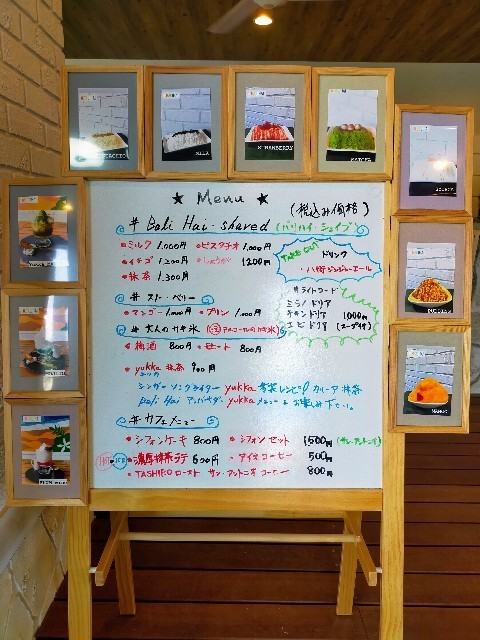 PISTACHIO
MILK
STRAWBERRY
MATCHA
MANGO
★ Menu ★
(税込み価格)
# Bali Hai-shaved (バリハイ・シェイブ)
• ミルク 1,000円 • ピスタチオ 1,000円
• イチゴ 1,200円 • しょうが 1200円
• 抹茶 1,300円
TAKE OUT
ドリンク
・八街ジンジャーエール
# スノーベリー
• マンゴー 1,000円 • プリン 1,000円
# ライトフード
ミラノドリア
チキンドリア 1000円
エビドリア (スープ付)
# 大人のカキ氷 (アルコールのカキ氷)
• 梅酒 800円 800円
• yukka 抹茶 900円
シンガーソングライター yukka 考案レシピ
Bali Hai アンバサダー yukka メニュー お楽しみ下さい。
# カフェメニュー
• シフォンケーキ 800円 • シフォンセット 1500円
HOT ICE 濃厚抹茶ラテ 600円 • アイスコーヒー 500円
• TASHIRO ロースト サン・アントニオコーヒー 800円